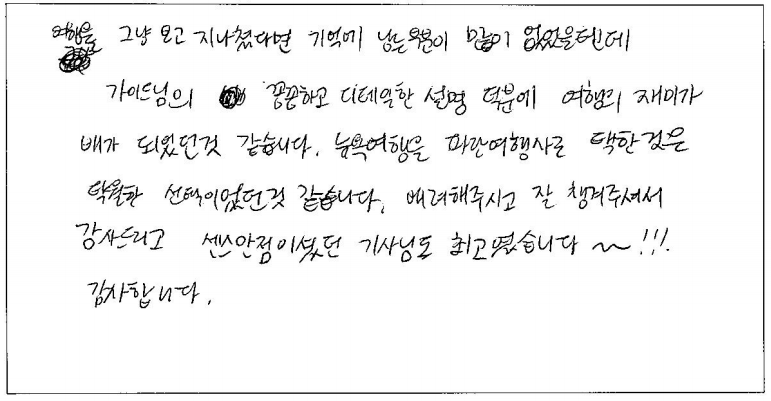 여행을 그냥 보고 지나쳤다면 기억에 남는 부분이 많이 없었을텐데
가이드님의 꼼꼼하고 디테일한 설명 덕분에 여행의 재미가
배가 되었던것 같습니다. 뉴욕여행을 파란여행사로 택한것은
탁월한 선택이었던것 같습니다. 배려해주시고 잘 챙겨주셔서
감사드리고 센스만점이셨던 기사님도 최고였습니다 ~!!!.
감사합니다.